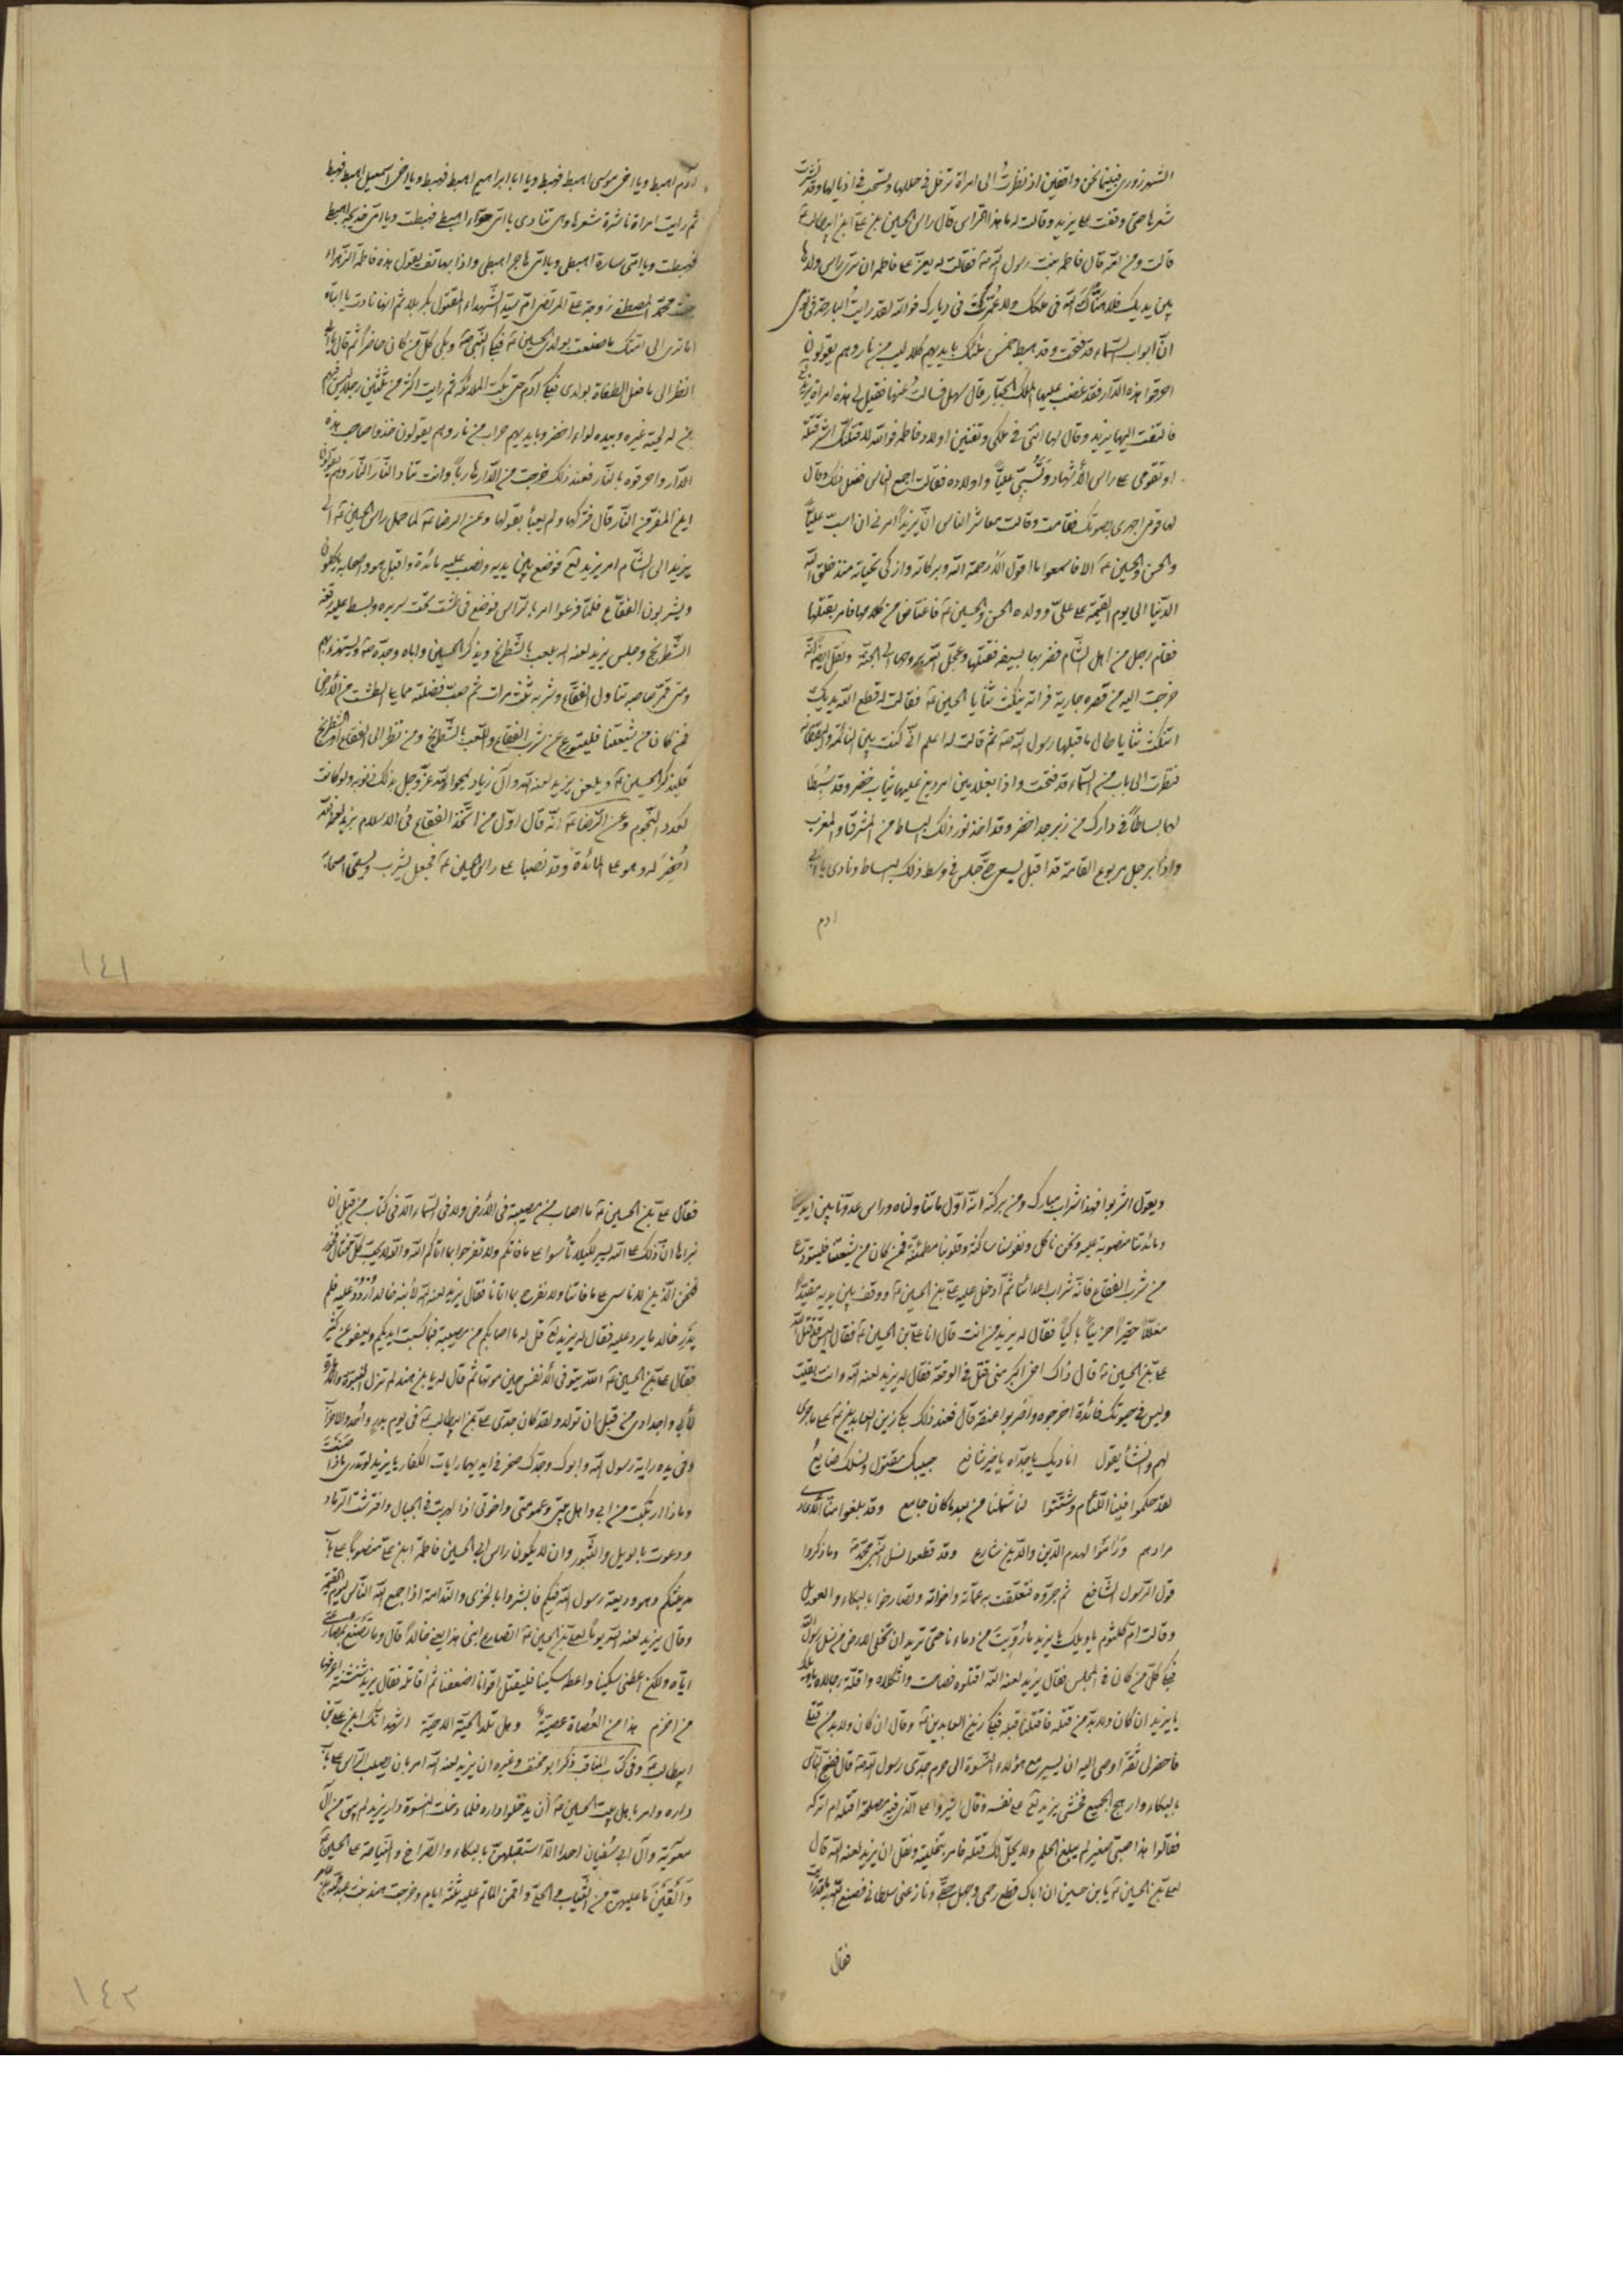 الشهرزوري فبينما نحن واقفين اذ نظرت الى امراة ترفل في حللها وتسحب في اذيالها وقد نشرت
شعرها حتى وقفت على يزيد وقالت له ما هذا الراس قال راس الحسين بن علي بن ابيطالب ع
قالت ومن امه قال فاطمة بنت رسول الله ص فقالت له يعز على فاطمة ان ترى راس ولدها
بين يديك فلا هنّاك الله في ملكك ولا عُمّرت في ديارك فوالله لقد رايت البارحة في نومي
انّ ابواب السّماء قد فتحت وقد هبط خمس ملئك بايديهم كلاليب من نار وهم يقولون
احرقوا هذه الدّار فقد غضب عليها الملك الجبّار قال سهل فسالت عنها فقيل لي هذه امراة يزيد
فالتفت اليها يزيد وقال لها انتي في ملكي وتفنين اولاد فاطمة فوالله لاقتلنك اشر قتلة
او تقومي على راس الاشهاد وتسبّي عليّاً واولاده فقالت اجمع الناس ففعل ذلك وقال
لها قومي اجهري بصوتك فقامت وقالت معاشر الناس انّ يزيداً امرني ان اسبّ عليّاً
والحسن والحسين ع الا فاسمعوا ما اقول الا رحمة الله وبركاته وازكى تحياته منذ خلق الله
الدّنيا الى يوم القيمة على عليّ وولده الحسن والحسين ع فاغتاض من كلامها فامر بقتلها
فقام رجل من اهل الشّام فضربها بسيفه فقتلها وعجّل الله بروحها الى الجنّة ونقل ايضاً انّه
خرجت اليه من قصره جارية فراته ينكث ثنايا الحسين ع فقالت له قطع الله يديك
اتنكث ثنايا طال ما قبلها رسول الله ص ثم قالت له اعلم انّي كنت بين النائمة واليقظانة
فنظرت الى باب من السّماء قد فتحت واذا بغلامين امردين عليهما ثياب خضر وقد بسطا
لهما بساطاً في دارك من زبرجد اخضر وقد اخذ نور ذلك البساط من المشرق والمغرب
واذا برجل مربوع القامة قد اقبل يسعى حتى جلس في وسط ذلك البساط ونادى يا ابي
ادم
ادم اهبط ويا اخي موسى اهبط فهبط ويا ابا ابراهيم اهبط فهبط ويا اخي اسمعيل اهبط فهبط
ثم رايت امراة ناشرة شعرها وهي تنادي يا امّي حوّاء اهبطي فهبطت ويا امّي خديجة اهبطي
فهبطت ويا امّي سارة اهبطي ويا امّي هاجر اهبطي واذا بهاتف يقول هذه فاطمة الزّهراء
بنت محمّد المصطفى زوجة علي المرتضى امّ سيد الشّهداء المقتول بكربلا ثم انها نادت يا ابتاه
اما ترى الى امّتك ما صنعت بولدي الحسين ع فبكا النّبي ص وبكى كلّ من كان حاضراً ثم قال يا ابي
انظر الى ما فعل الطغاة بولدي فبكا ادم حتى بكت الملائكة ثم رايت اكثر من ثلثين رجلا ليس فيهم
من له لحية غيره وبيده لواء اخضر وبايديهم حراب من نار وهم يقولون خذوا صاحب هذه
الدّار واحرقوه بالنّار فعند ذلك خرجت من الدّار هارباً وانت تناد النّار النّار وهم يقولون
اين المفر من النّار قال فتركها ولم يعبأ بقولها وعن الرضا ع لما حمل راس الحسين ع الى
يزيد الى الشّام امر يزيد لع فوضع بين يديه ونصب عليه مائدة واقبل هو واصحابه ياكلون
ويشربون الفقّاع فلمّا فرغوا امر بالرّاس فوضع في طشت تحت سريره وبسط عليه رقعة
الشّطرنج وجلس يزيد لعنه الله يلعب بالشّطرنج ويذكر الحسين واباه وجدّه ص ويستهزء بهم
ومتى قمّر صاحبه تناول الفقّاع وشربه ثلث مرات ثم صبّ فضلته مما يلي الطشت من الأرض
فمن كان من شيعتنا فليتورع عن شرب الفقّاع واللّعب بالشّطرنج ومن نظر الى الفقّاع او الشّطرنج
فليذكر الحسين ع ويلعن يزيد لعنه الله وال زياد يمحوا الله عزّ وجل بذلك ذنوبه ولو كانت
كعدد النّجوم وعن الرّضا ع انّه قال اوّل من اتّخذ الفقّاع في الاسلام يزيد لعنه الله
اُحضِر له وهو على المائدة وقد نصبا على راس الحسين ع فجعل يشرب ويسقي اصحابه
١٤١
ويقول اشربوا فهذا شراب مبارك ومن بركته انّه اوّل ما تناولناه وراس عدوّنا بين ايدينا
ومائدتنا منصوبة عليه ونحن ناكل ونفوسنا ساكنة وقلوبنا مطمئنّة فمن كان من شيعتنا فليتورّع
من شرب الفقّاع فانّه شراب اعدائنا ثم ادخل عليه علي بن الحسين ع ووقف بين يديه مقيّداً
مغلّلاً حقيراً حزيناً باكياً فقال له يزيد من انت قال انا علي بن الحسين ع فقال اليس قد قتل الله
علي بن الحسين ع قال ذاك اخي اكبر مني قتل في الوقعة فقال له يزيد لعنه الله وانت بقيت
وليس في حيوتك فائدة اخرجوه واضربوا عنقه قال فعند ذلك بكا زين العابدين ع على ما جرى
لهم وانشأ يقول اناديك يا جدّاه يا خير شافع حبيبك مقتول ونسلك ضايعُ
لقد حكموا فينا اللئام وشتّتوا لنا شملنا من بعد ما كان جامع وقد بلغوا منا الاعادي
مرادهم ورامُوا لهدم الدّين والدّين شارع وقد قطعوا نسل النّبي محمّد ص وما ذكروا
قول الرّسول الشّافع ثم جرّوه فتعلّقت به عمّاته واخواته وتصارخوا بالبكاء والعويل
وقالت امّ كلثوم يا ويلك يا يزيد ما رُوّيت من دماءنا حتى تريد ان تخلي الارض من نسل رسول الله
فبكا كلّ من كان في المجلس فقال يزيد لعنه الله اقتلوه فصاحت واثكلاه واقلّة رجالاه يا ويلك
يا يزيد ان كان ولابدّ من قتله فاقتلنا قبله فبكا زين العابدين ع وقال ان كان ولابد من قتلي
فاحضر لي ثقة اوصي اليه ان يسير مع هؤلاء النّسوة الى حرم جدّي رسول الله ص قال فضج النّاس
بالبكاء وارهج الجميع فخشي يزيد لع على نفسه وقال اشيروا على الذي فيه مصلحة اقتله ام اتركه
فقالوا هذا صبيّ صغير لم يبلغ الحلم ولا يحلّ لك قتله فامر بتخليته ونقل ان يزيد لعنه الله قال
لعلي بن الحسين ع يا بن حسين ان اباك قطع رحمي وجهل حقّي ونازعني سلطاني فصنع الله به ما قد رايت
فقال
فقال علي بن الحسين ع ما اصاب من مصيبة في الأرض ولا في السّماء الا في كتاب من قبل ان
نبراها انّ ذلك على الله يسير لكيلا تأسوا على ما فاتكم ولا تفرحوا بما اتاكم الله والله لا يحب كلّ مختال فخور
فنحن الّذين لا ناسى على ما فاتنا ولا نفرح بما اتانا فقال يزيد لعنه الله لأبنه خالد اُردُد عليه فلم
يَدْرِ خالد ما يرد عليه فقال له يزيد لع قل له ما اصابكم من مصيبة فبما كسبت ايديكم ويعفو عن كثير
فقال علي بن الحسين ع الله يتوفى الأنفس حين موتها ثم قال له يا بن هند لم تزل النبوّة والامرة
لأبي واجدادي من قبل ان تولد ولقد كان جدّي علي بن ابيطالب ع في يوم بدر وأحد والاحزاب
وفي يده راية رسول الله وابوك وجدّك صخر في ايديهما رايات الكفّار يا يزيد لو تدري ماذا صنعت
وماذا ارتكبت من ابي واهل بيتي وعمومتي واخوتي اذا لهربت في الجبال وافترشت الرّماد
ودعوت بالويل والثّبور وان لا يكون راس ابي الحسين بن فاطمة ابن علي منصوباً على باب
مدينتكم وهو وديعة رسول الله فيكم فابشروا بالخزي والنّدامة اذا جمع الله النّاس ليوم القيمة
وقال يزيد لعنه الله يوماً لعلي بن الحسين ع اتصارع ابني هذا يعني خالداً قال وما تصنع بمصارعتي
ايّاه ولكن اعطني سكينا واعطه سكينا فليقتل اقوانا اضعفنا ثم اقاتله فقال يزيد شنشنة اعرفها
من اخزم هذا من العُصاة عصيّة وهل تلد الحيّة الا حيّة اشهد انك ابن علي بن
ابيطالب ع وفي كتاب المناقب ذكر ابو مخنف وغيره ان يزيد لعنه الله امر بان يصلب الرّاس على باب
داره وامر باهل بيت الحسين ع ان يدخلوا داره فلما دخلت النسوة دار يزيد لم يبق من ال
معوية وال ابي سفيان احدا الّا استقبلهنّ بالبكاء والصّراخ والنّياحة على الحسين ع
وألقين ما عليهنّ من الثّياب والحلي واقمن الماتم عليه ثلثة ايام وخرجت هند بنت عبد الله بن عامر
١٤٢